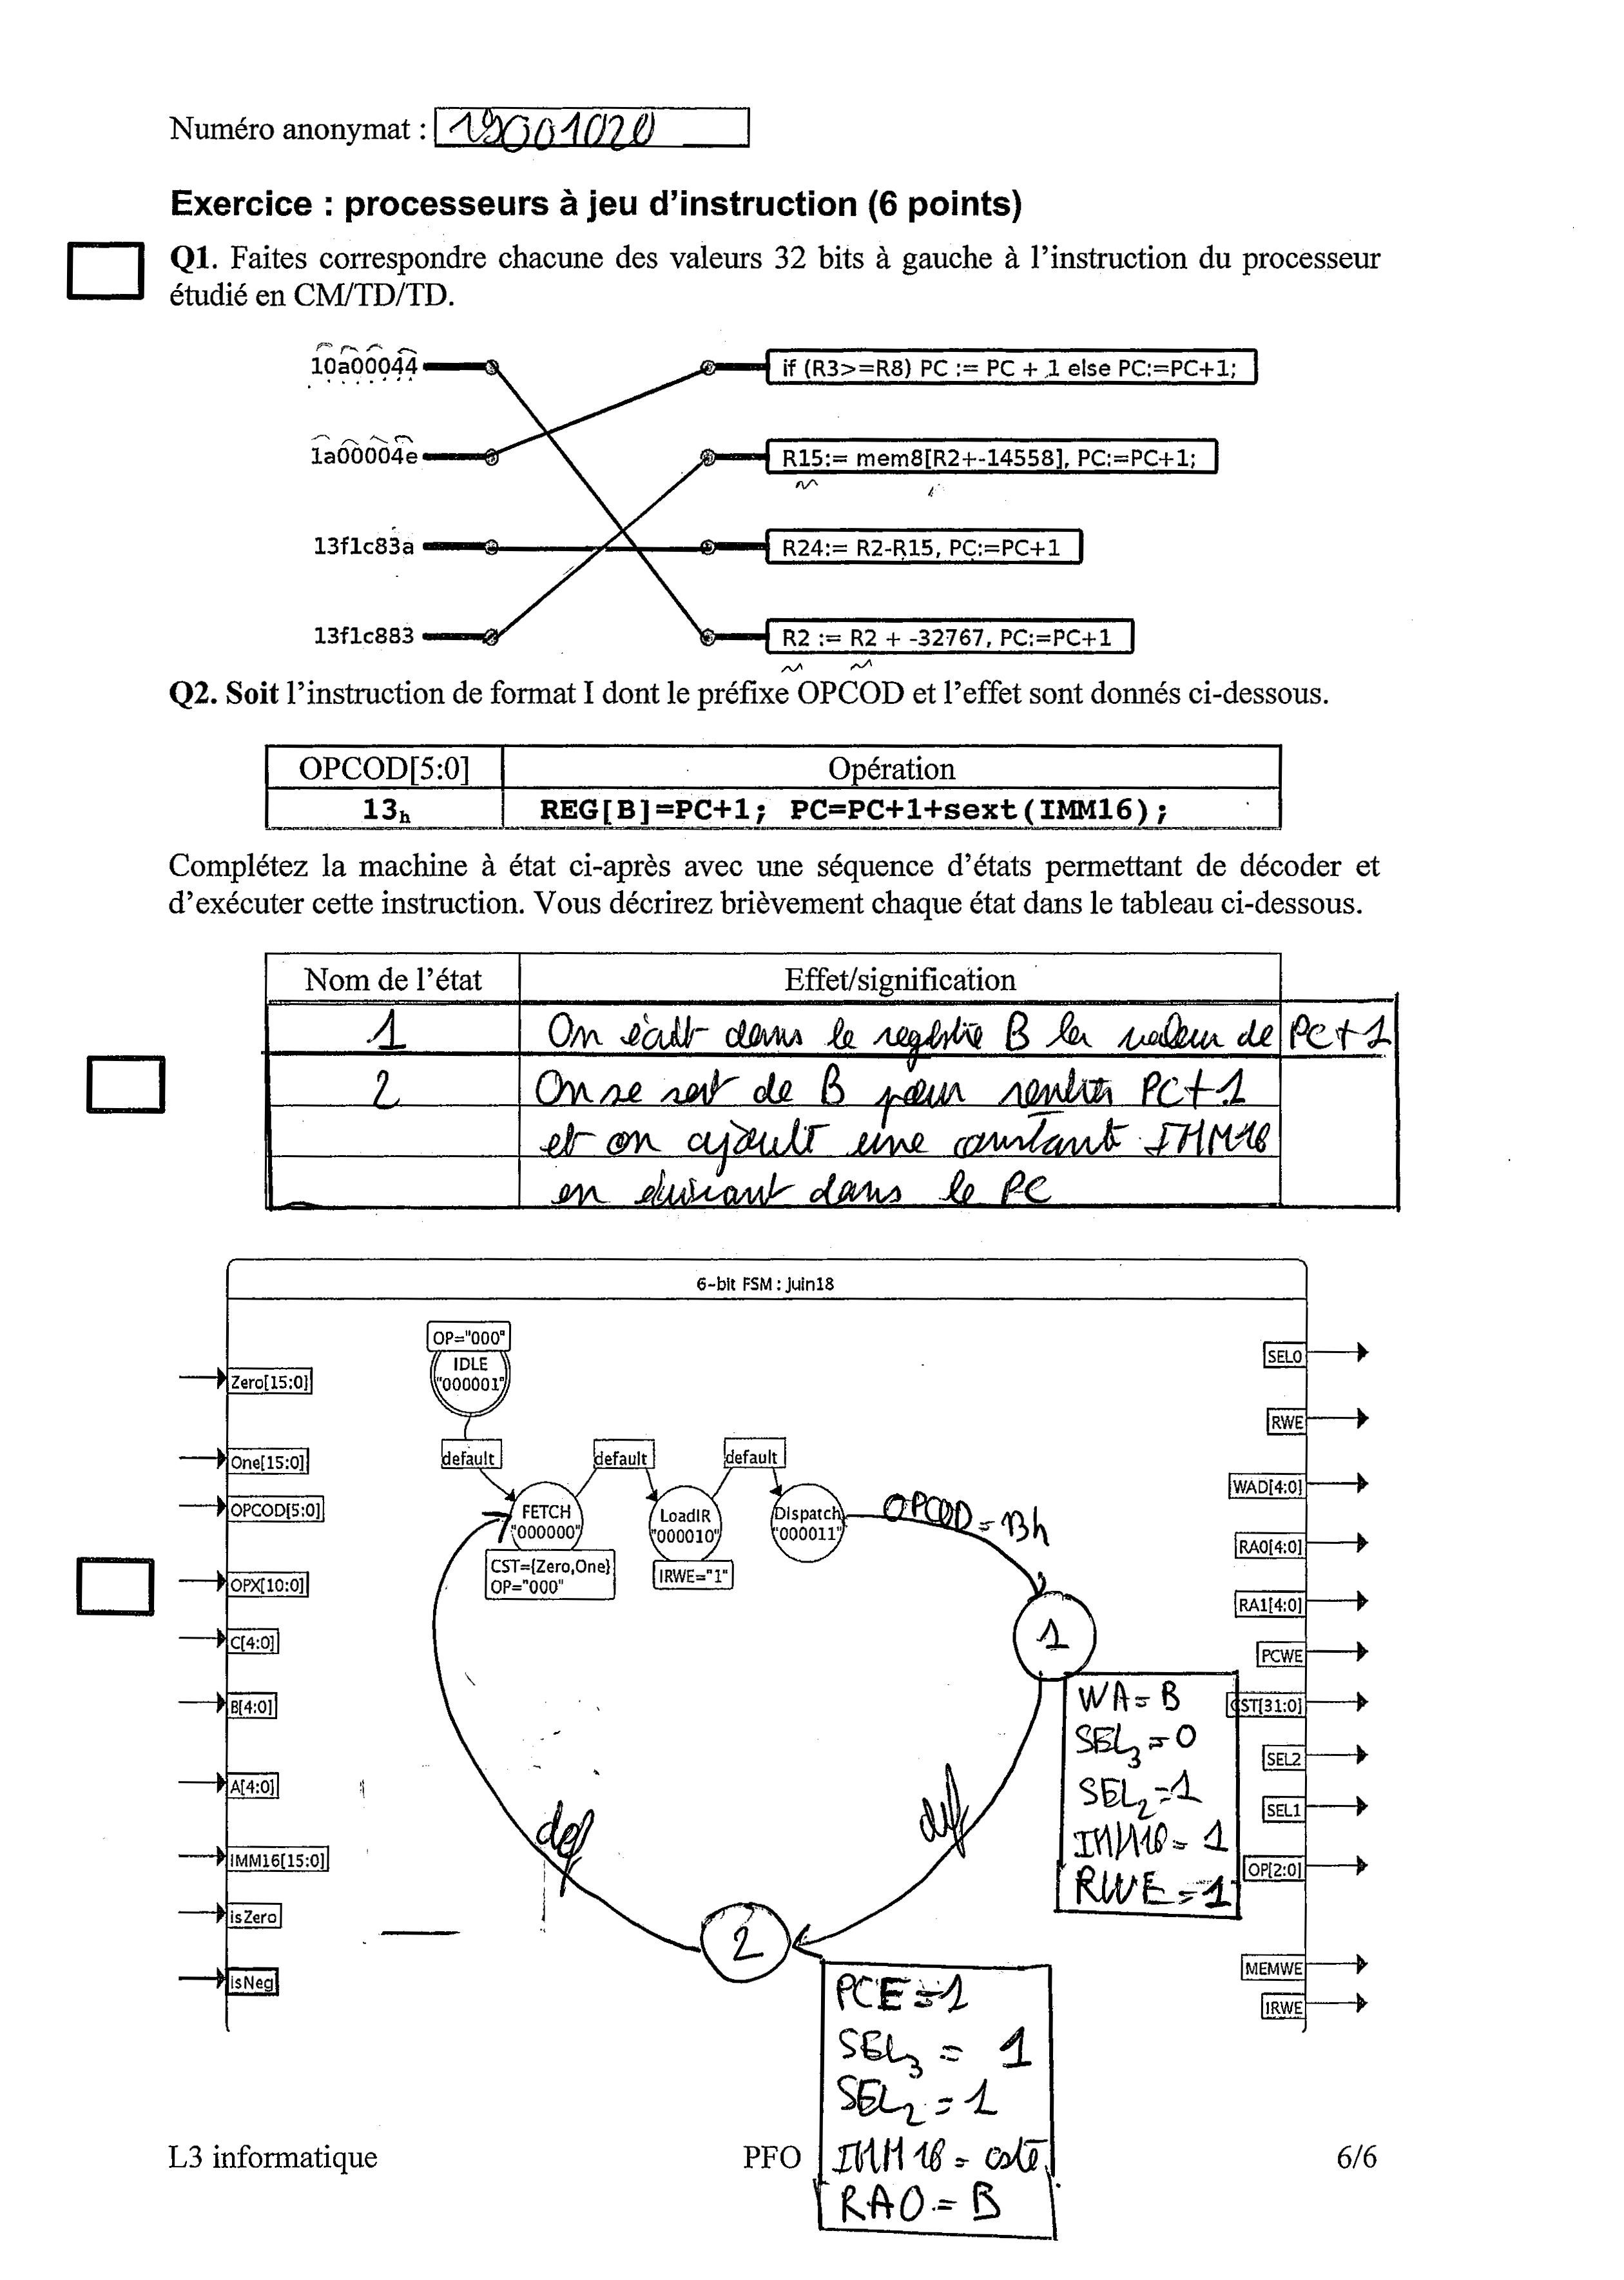 Numéro anonymat : 19001020
Exercice : processeurs à jeu d'instruction (6 points)
Q1. Faites correspondre chacune des valeurs 32 bits à gauche à l'instruction du processeur
étudié en CM/TD/TD.
10a00044 if (R3>=R8) PC := PC + 1 else PC:=PC+1;
1a00004e R15:= mem8[R2+-14558], PC:=PC+1;
13f1c83a R24:= R2-R15, PC:=PC+1
13f1c883 R2 := R2 + -32767, PC:=PC+1
Q2. Soit l'instruction de format I dont le préfixe OPCOD et l'effet sont donnés ci-dessous.
OPCOD[5:0] Opération
13h REG[B]=PC+1; PC=PC+1+sext(IMM16);
Complétez la machine à état ci-après avec une séquence d'états permettant de décoder et
d'exécuter cette instruction. Vous décrirez brièvement chaque état dans le tableau ci-dessous.
Nom de l'état Effet/signification
1 On écrit dans le registre B la valeur de PC+1
2 On se sert de B pour PC+1
et on ajoute une constant IMM16
en dans le PC
6-bit FSM : juin18
OP="000"
IDLE
"000001"
default
default
default
FETCH
"000000"
CST={Zero,One}
OP="000"
LoadIR
"000010"
IRWE="1"
Dispatch
"000011"
OPCOD = 13h
1
WA = B
SEL3 = 0
SEL2 = 1
IMM16 = 1
RWE = 1
def
def
2
PCE = 1
SEL3 = 1
SEL2 = 1
IMM16 = cste
RA0 = B
Zero[15:0]
One[15:0]
OPCOD[5:0]
OPX[10:0]
C[4:0]
B[4:0]
A[4:0]
IMM16[15:0]
isZero
isNeg
SEL0
RWE
WAD[4:0]
RA0[4:0]
RA1[4:0]
PCWE
CST[31:0]
SEL2
SEL1
OP[2:0]
MEMWE
IRWE
L3 informatique PFO 6/6